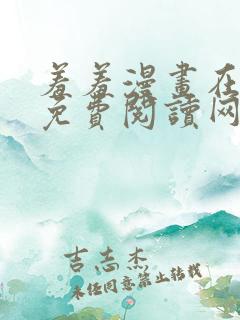 羞羞漫畫在
免費閱讀网
吉志杰
未经同意禁止转载